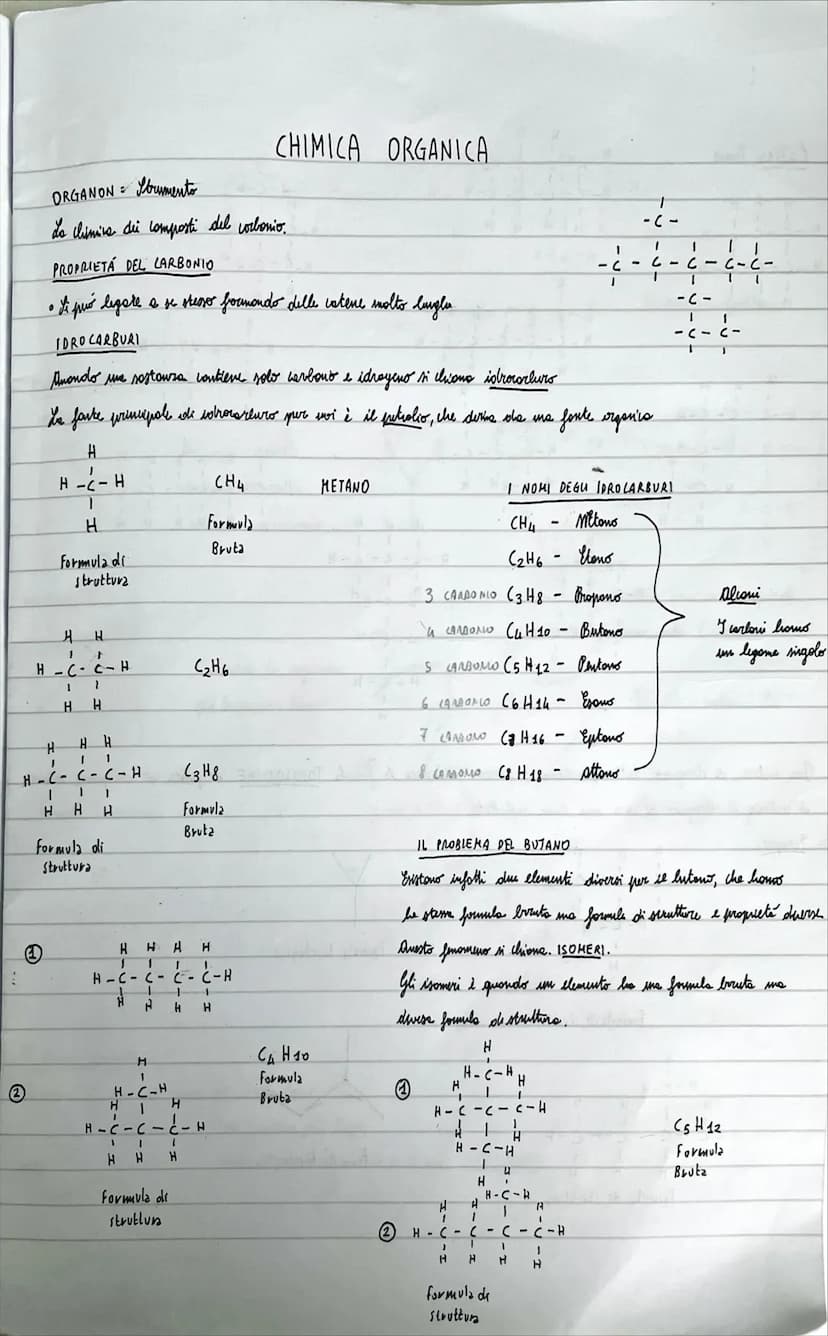 CHIMICA ORGANICA
ORGANON = Strumento
La chimica dei composti del carbonio.
PROPRIETÁ DEL CARBONIO
• Si può legare a se stesso formando delle catene molto lunghe
- C -
- C - C - C - C - C -
- C -
- C - C -
IDROCARBURI
Quando una sostanza contiene solo carbonio e idrogeno si chiama idrocarburo
La fonte principale di idrocarburo per noi è il petrolio, che deriva da una fonte organica
H
H - C - H
H
Formula di
struttura
CH4
Formula
Bruta
METANO
H H
H - C - C - H
H H
C2H6
H H H
H - C - C - C - H
H H H
Formula di
struttura
C3H8
Formula
Bruta
I NOMI DEGLI IDROCARBURI
CH4 - Metano
C2H6 - Etano
3 CARBONIO C3H8 - Propano
4 CARBONIO C4H10 - Butano
5 CARBONIO C5H12 - Pentano
6 CARBONIO C6H14 - Esano
7 CARBONIO C7H16 - Eptano
8 CARBONIO C8H18 - Ottano
Alcani
I carboni hanno
un legame singolo
IL PROBLEMA DEL BUTANO
Esistono infatti due elementi diversi per il butano, che hanno
la stessa formula bruta ma formule di strutture e proprietá diverse
Questo fenomeno si chiama ISOMERI.
Gli isomeri è quando un elemento ha una formula bruta ma
diversa formula di struttura.
1
H H H H
H - C - C - C - C - H
H H H H
2
H
H - C - H
H H
H - C - C - C - H
H H H
Formula di
struttura
C4H10
Formula
Bruta
1
H
H - C - H
H H
H - C - C - C - H
H H
H - C - H
H
2
H
H - C - H
H H H
H - C - C - C - C - H
H H H H
Formula di
struttura
C5H12
Formula
Bruta